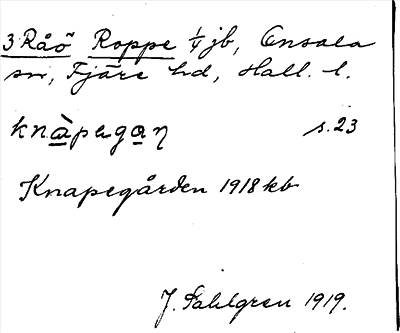 3 Råö Roppe ¼ jb, Onsala
sn, Fjäre hd, Hall. l.
knàpagaŋ s. 23
Knapegården 1918 kb
J. Sahlgren 1919.